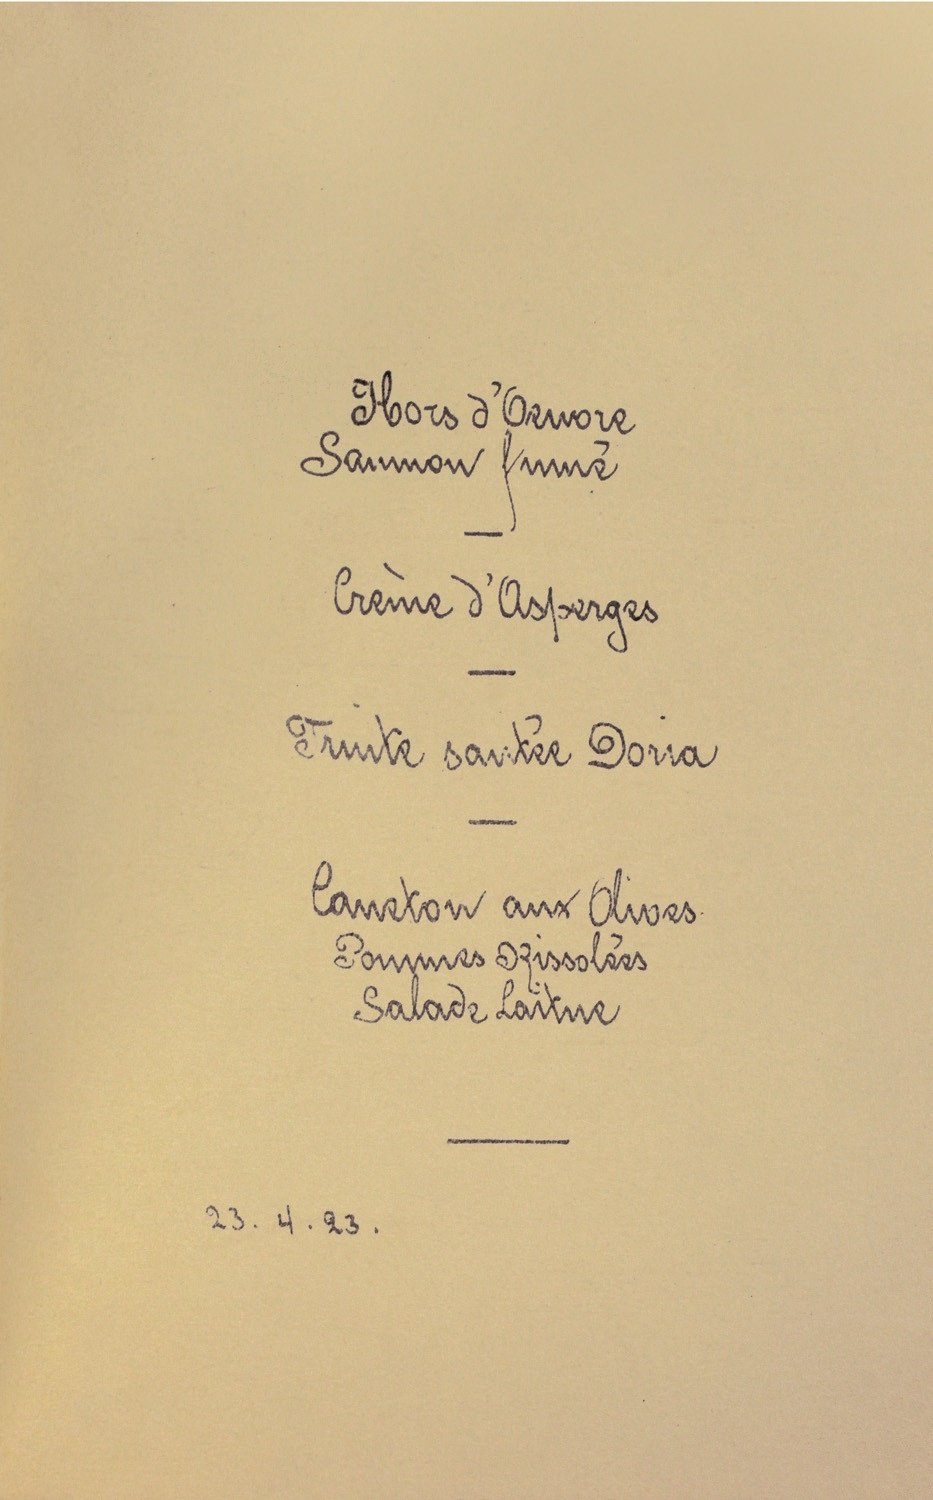 Hors d'Oeuvore
Saumon fumé
—
Crème d'Asperges
—
Truite sautée Doria
—
Caneton aux Olives
Pommes Rissolées
Salade Laitue
—
23. 4. 23.